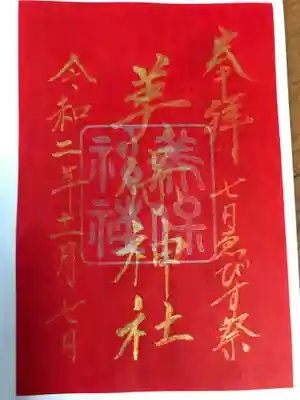 奉拝
七日ゑびす祭
美保神社
美保
神社
令和二年十一月七日